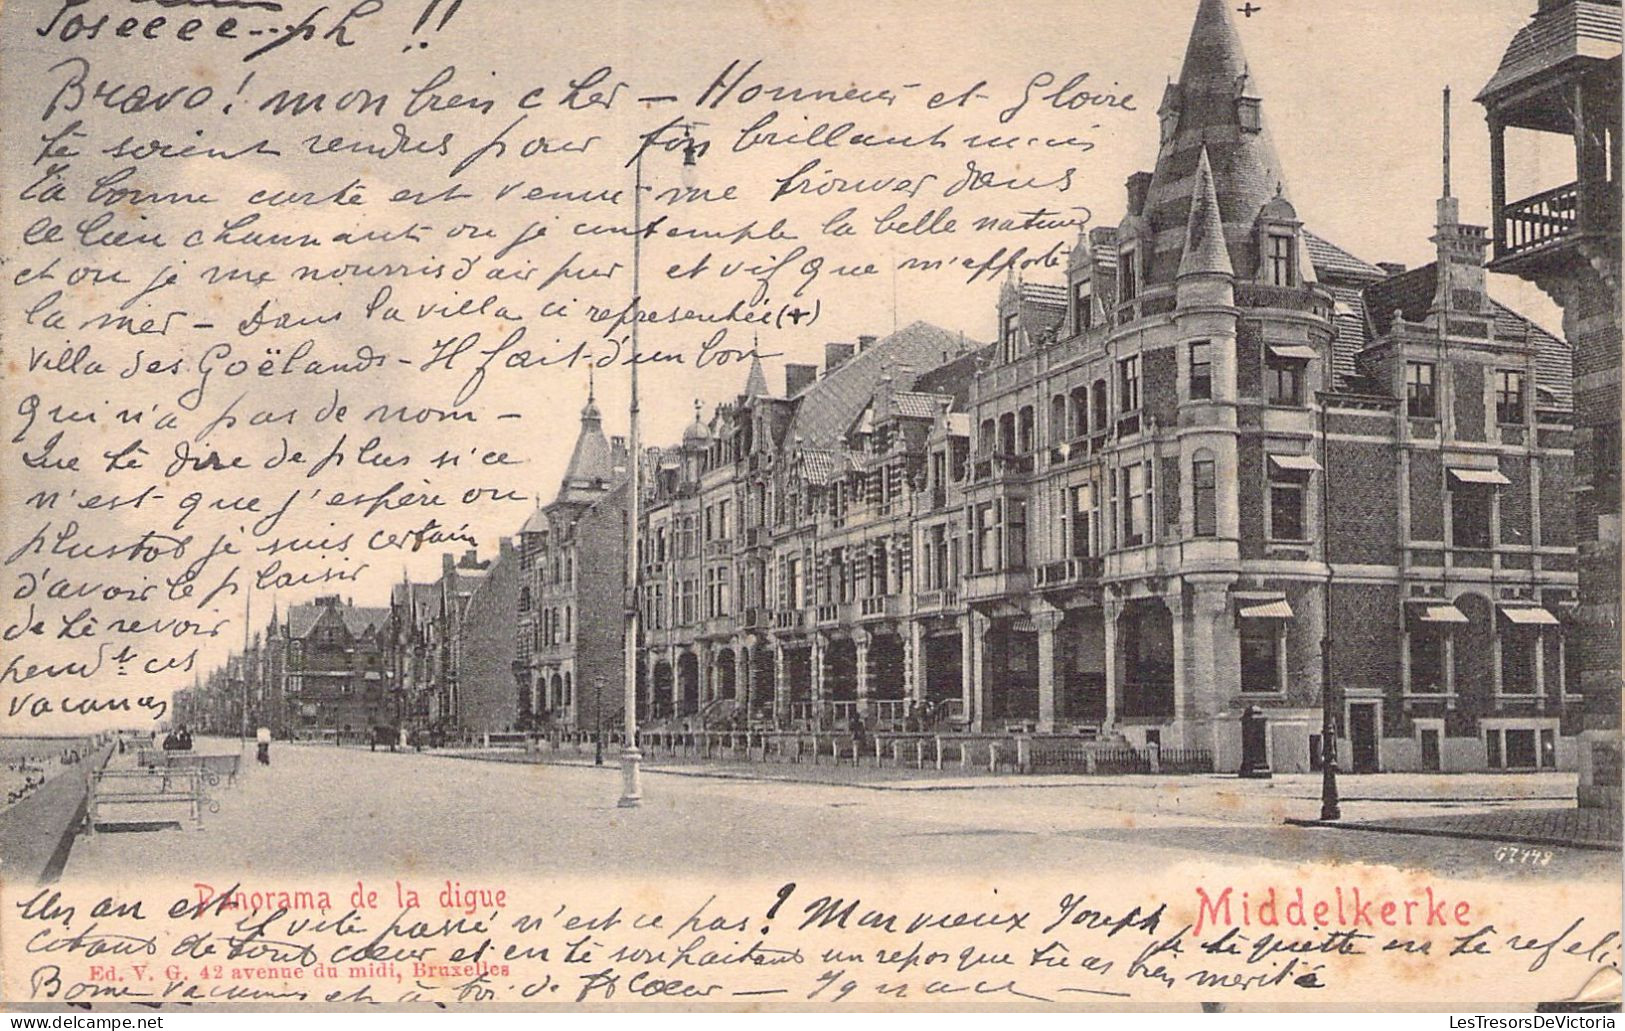 Poseeee--ph !!
Bravo ! mon bien cher — Honneur et Gloire
te soient rendus pour ton brillant mais
Ta bonne carte est venue me trouver dans
ce lieu charmant ou je contemple la belle nature
et ou je me nourris d'air pur et vif que m'apporte
la mer — Dans la villa ci représentée (+)
Villa des Goëlands — Il fait d'un bon
qui n'a pas de nom —
Que te dire de plus si ce
n'est que j'espère ou
plustot je suis certain
d'avoir le plaisir
de te revoir
pendt ces
vacances
+
G7448
Panorama de la digue
Middelkerke
Un an est il vite passé n'est ce pas ? Mon vieux Joseph je te quitte en te
citant de tout cœur et en te souhaitant un repos que tu as bien merité
Ed. V. G. 42 avenue du midi, Bruxelles
Bonne vacances et à toi de Cœur — Ignace —
LesTresorsDeVictoria